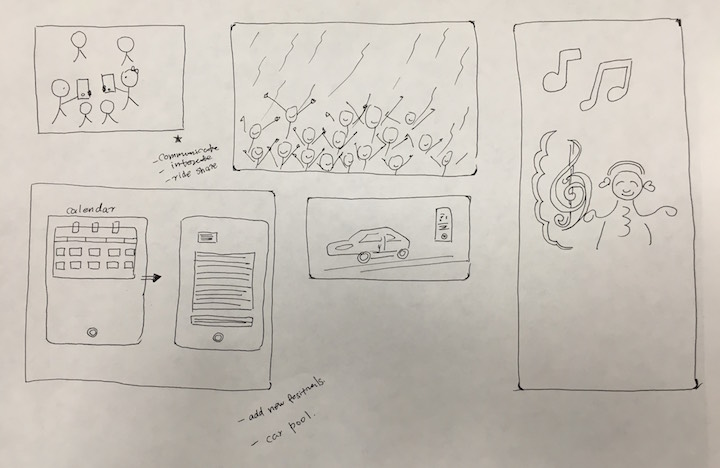 - communicate
- interacte
- ride share
calendar
- add new festivals.
- car pool.